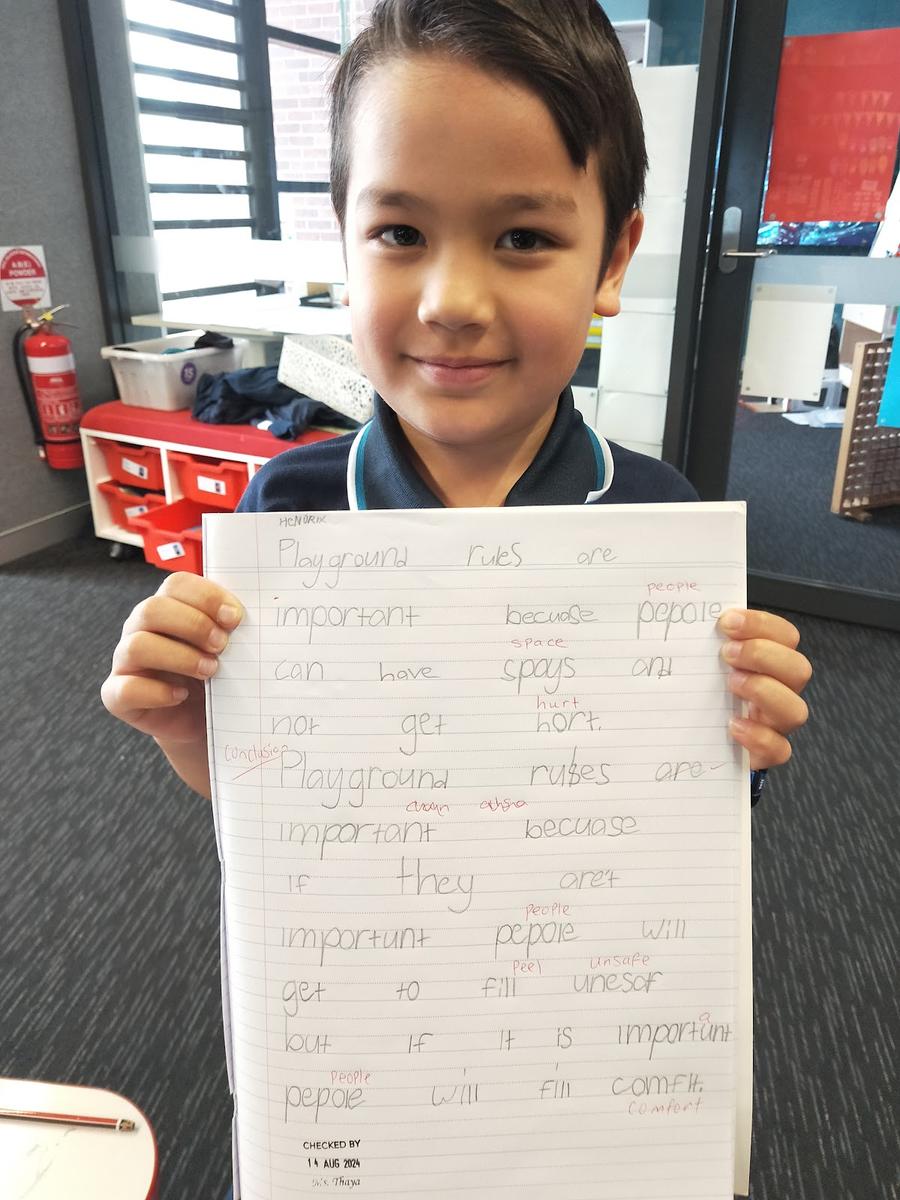 POWDER
15
HENDRIX
Playground rules are
people
important becuase pepole
space
can have spays and
hurt
not get hort.
conclusion
Playground rules are
important becuase
if they are't
people
importunt pepole will
feel unsafe
get to fill unesaf
a
but if it is important
people
pepole will fill comfit.
comfort
CHECKED BY
14 AUG 2024
Ms. Thaya